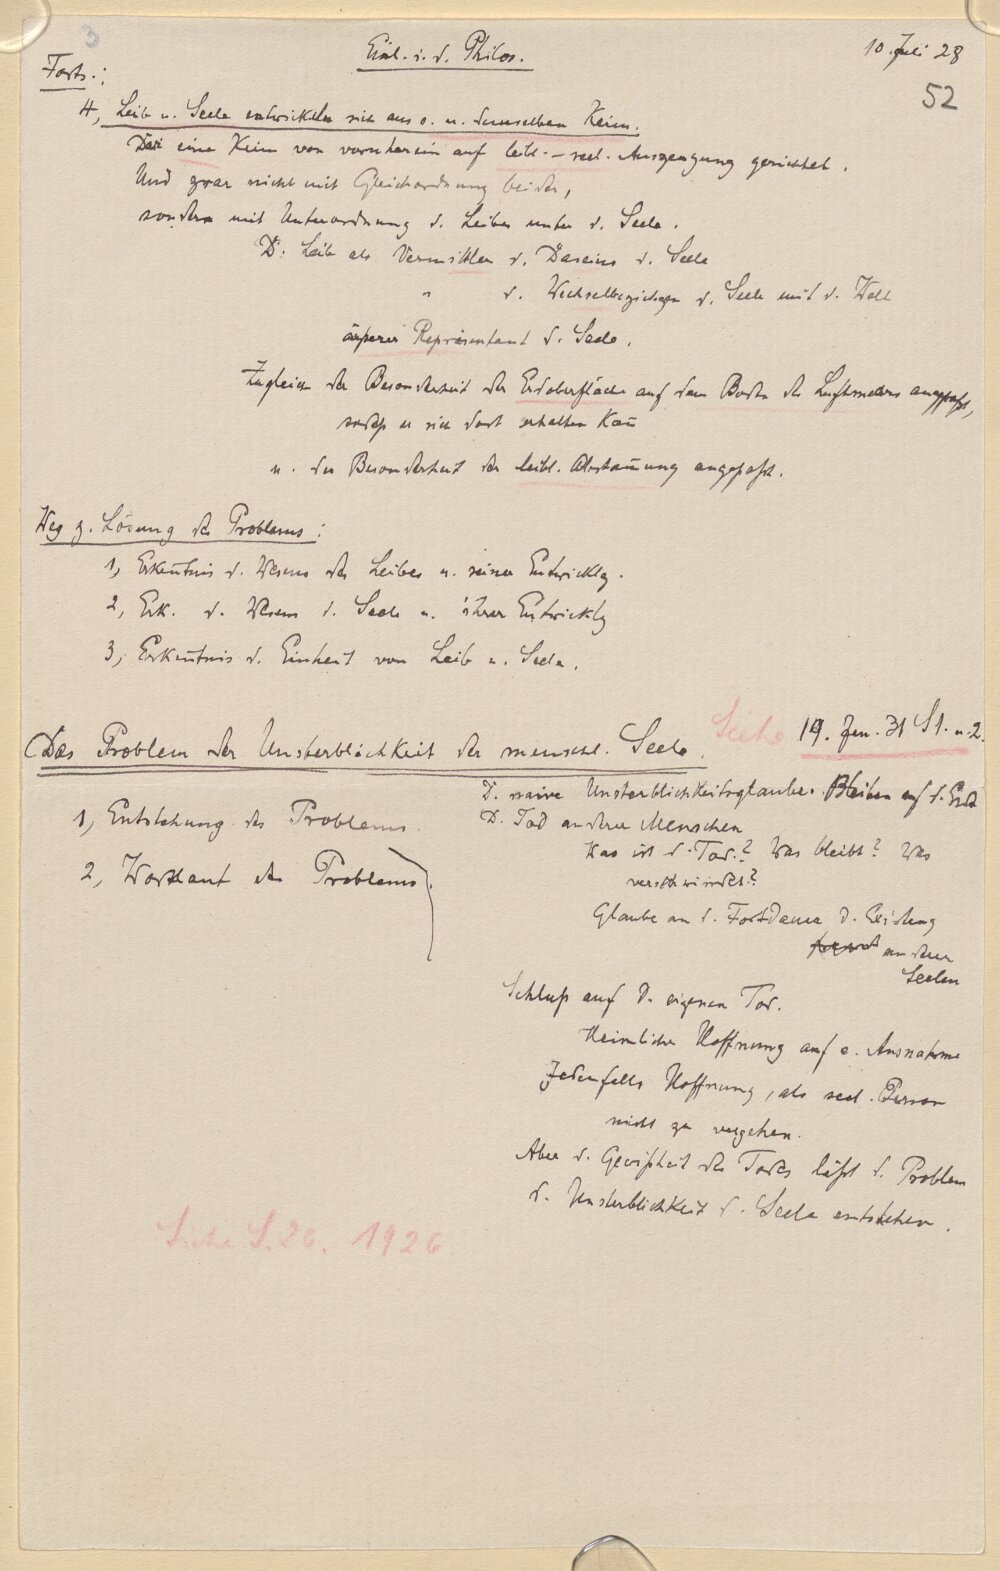 3
Einl. i. d. Philos.
10. Juli 28
52
Forts.:
4, Leib u. Seele entwickeln sich aus e. u. demselben Keim.
Der eine Keim von vornherein auf leibl.-seel. Auszeugung gerichtet.
Und zwar nicht mit Gleichordnung beider,
sondern mit Unterordnung d. Leibes unter d. Seele.
D: Leib als Vermittler d. Daseins d. Seele
" d. Wechselbeziehgen d. Seele mit d. Welt
äußerer Repräsentant d. Seele.
Zugleich der Besonderheit der Erdoberfläche auf dem Boden des Luftmeeres angepaßt,
sodaß er sich dort erhalten kan̄
u. der Besonderheit der leibl. Abstam̄ung angepaßt.
Weg z. Lösung des Problems:
1, Erken̄tnis d. Wesens des Leibes u. seiner Entwicklg.
2, Erk. d. Wesens d. Seele u. ihrer Entwicklg
3, Erken̄tnis d. Einheit von Leib u. Seele.
Siehe 19. Jan. 31 St. u. 2.
Das Problem der Unsterblichkeit der menschl. Seele.
1, Entstehung des Problems.
2, Wortlaut des Problems.
D. naive Unsterblichkeitsglaube. Bleiben auf d. Erde
D. Tod anderer Menschen
Was ist d. Tod? Was bleibt? Was
verschwindet?
Glaube an d. Fortdauer d.
anderer
Seelen
Schluß auf d. eigenen Tod.
Heimliche Hoffnung auf e. Ausnahme
Jedenfalls Hoffnung, als seel. Person
nicht zu vergehen.
Aber d. Gewißheit des Todes läßt d. Problem
d. Unsterblichkeit d. Seele entstehen.
Siehe S. 26. 1926.